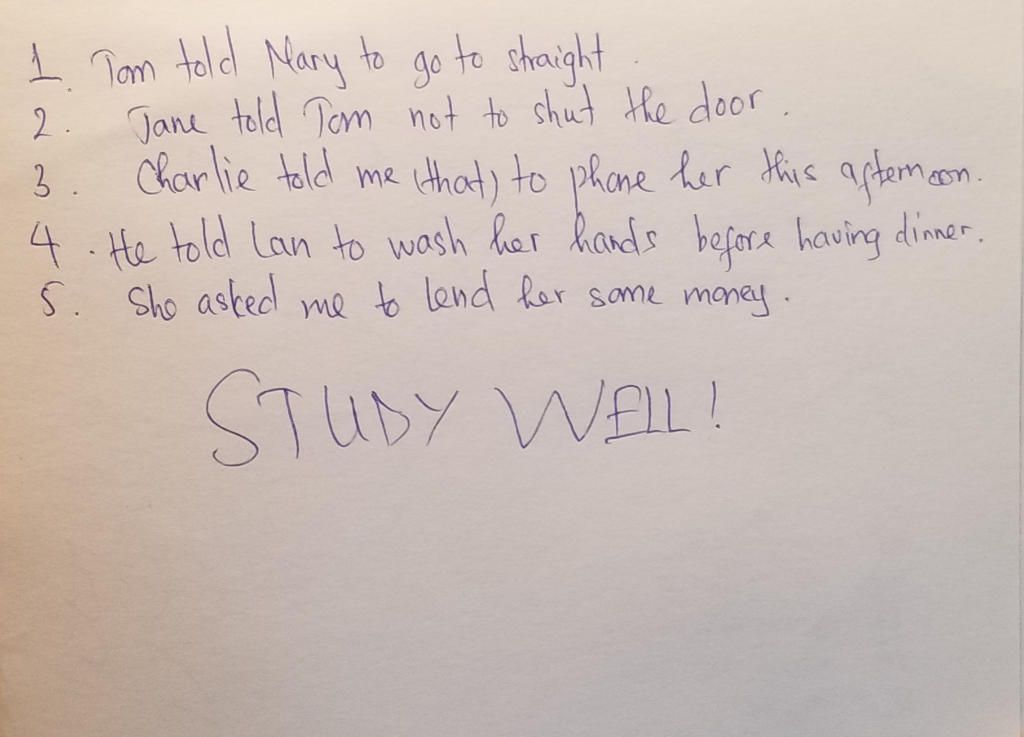 1. Tom told Mary to go to straight.
2. Jane told Tom not to shut the door.
3. Charlie told me (that) to phone her this afternoon.
4. He told Lan to wash her hands before having dinner.
5. She asked me to lend her some money.
STUDY WELL!